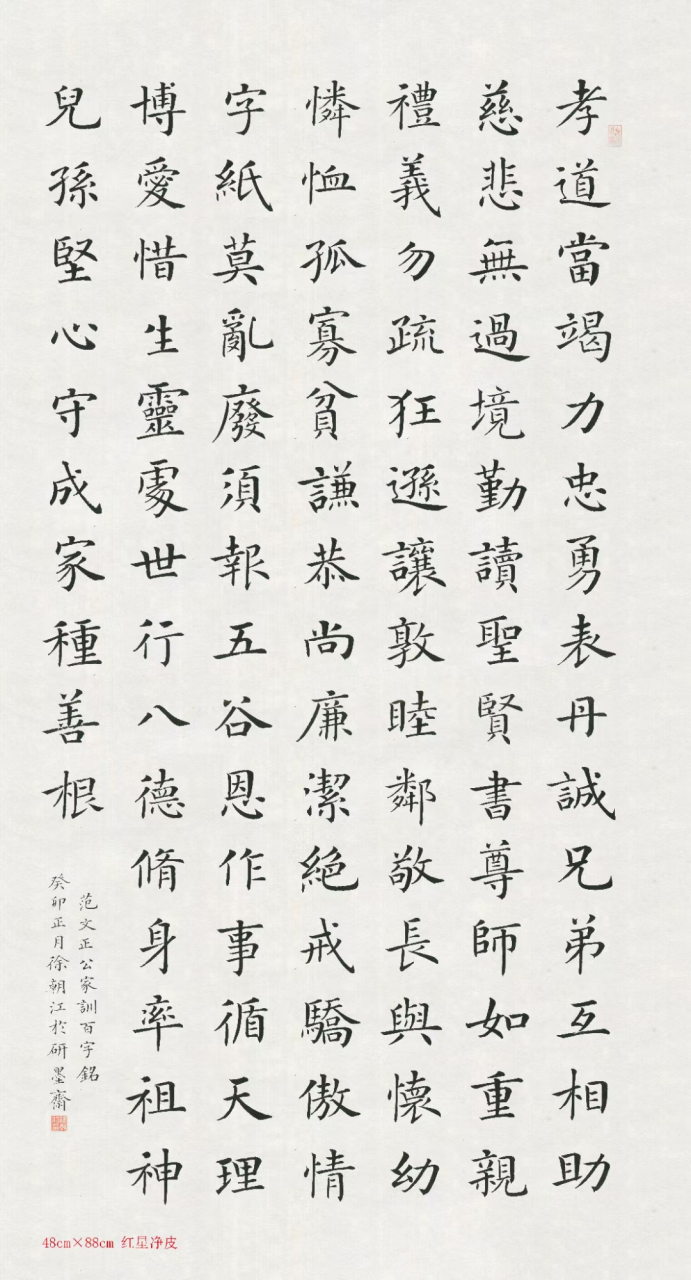 孝道當竭力忠勇表丹誠兄弟互相助
慈悲無過境勤讀聖賢書尊師如重親
禮義勿疏狂遜讓敦睦鄰敬長與懷幼
憐恤孤寡貧謙恭尚廉潔絕戒驕傲情
字紙莫亂廢須報五谷恩作事循天理
博愛惜生靈處世行八德脩身率祖神
兒孫堅心守成家種善根
范文正公家訓百字銘
癸卯正月徐朝江於研墨齋
48cm×88cm 红星净皮